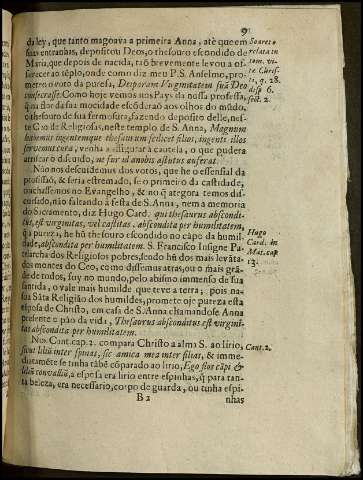 9
da ley, que tanto magoava a primeira Anna, atè que em
suas entranhas, depositou Deos, o thesouro escondido de
Maria, que depois de nacida, taõ brevemente levou a of-
ferecer ao tẽplo, onde como diz meu P. S. Anselmo, pro-
meteo o voto da puresa, Deiparam Virginitatem suã Deo
consecrasse. Como hoje vemos nos Pays da nossa professa,
q̃ na flor da sua mocidade escõderaõ aos olhos do mũdo,
o thesouro de sua fermosura, fazendo deposito delle, nes-
te Ceo de Religiosas, neste templo de S. Anna, Magnum
habemus ingentemque thesaurum scilicet filios, ingenti illos
servemus cura, venha a assigurar a cautela, o que pudera
arriscar o discuido, ne fur id a nobis astutus auferat.
Não nos descuidemos dos votos, que he o essensial da
profissaõ, & seria estremado, se o primeiro da castidade,
o achassemos no Evangelho, & no q̃ ategora temos dis-
cursado, não faltando á festa de S. Anna, nem a memoria
do Sacramento, diz Hugo Card. qui thesaurus abscondi-
tus, est virginitas, vel castitas, abscondita per humilitatem,
q̃ a puresa, he hũ thesouro escondido no cãpo da humil-
dade, abscondita per humilitatem. S. Francisco Insigne Pa-
triarcha dos Religiosos pobres, sendo hũ dos mais levãta-
dos montes do Ceo, como dissemus atras, ou o mais grã-
de de todos, fuy no mundo, pelo abismo immenso de sua
santida, o vale mais humilde que teve a terra; pois na
sua Sãta Religião dos humildes, promete oje pureza esta
esposa de Christo, em casa de S. Anna chamandose Anna
presente o pão da vida, Thesaurus absconditus est virgini-
tas abscondita per humilitatem.
Nos Cant. cap. 2. compara Christo a alma S. ao lirio,
sicut liliũ inter spinas, sic amica mea inter filias, & imme-
diatamẽte se tinha tãbẽ cõparado ao lirio, Ego flos cãpi &
liliũ convalliũ, a esposa era lirio entre espinhas, q̃ para tan-
ta beleza, era necessario, corpo de guarda, ou tunha espi-
B 2 nhas
Soares
relata in
tom. vi-
te Chris-
ti, q. 28.
disp 6.
sect. 2.
Hugo
Card. in
Mat. cap
13.
Cant. 2.